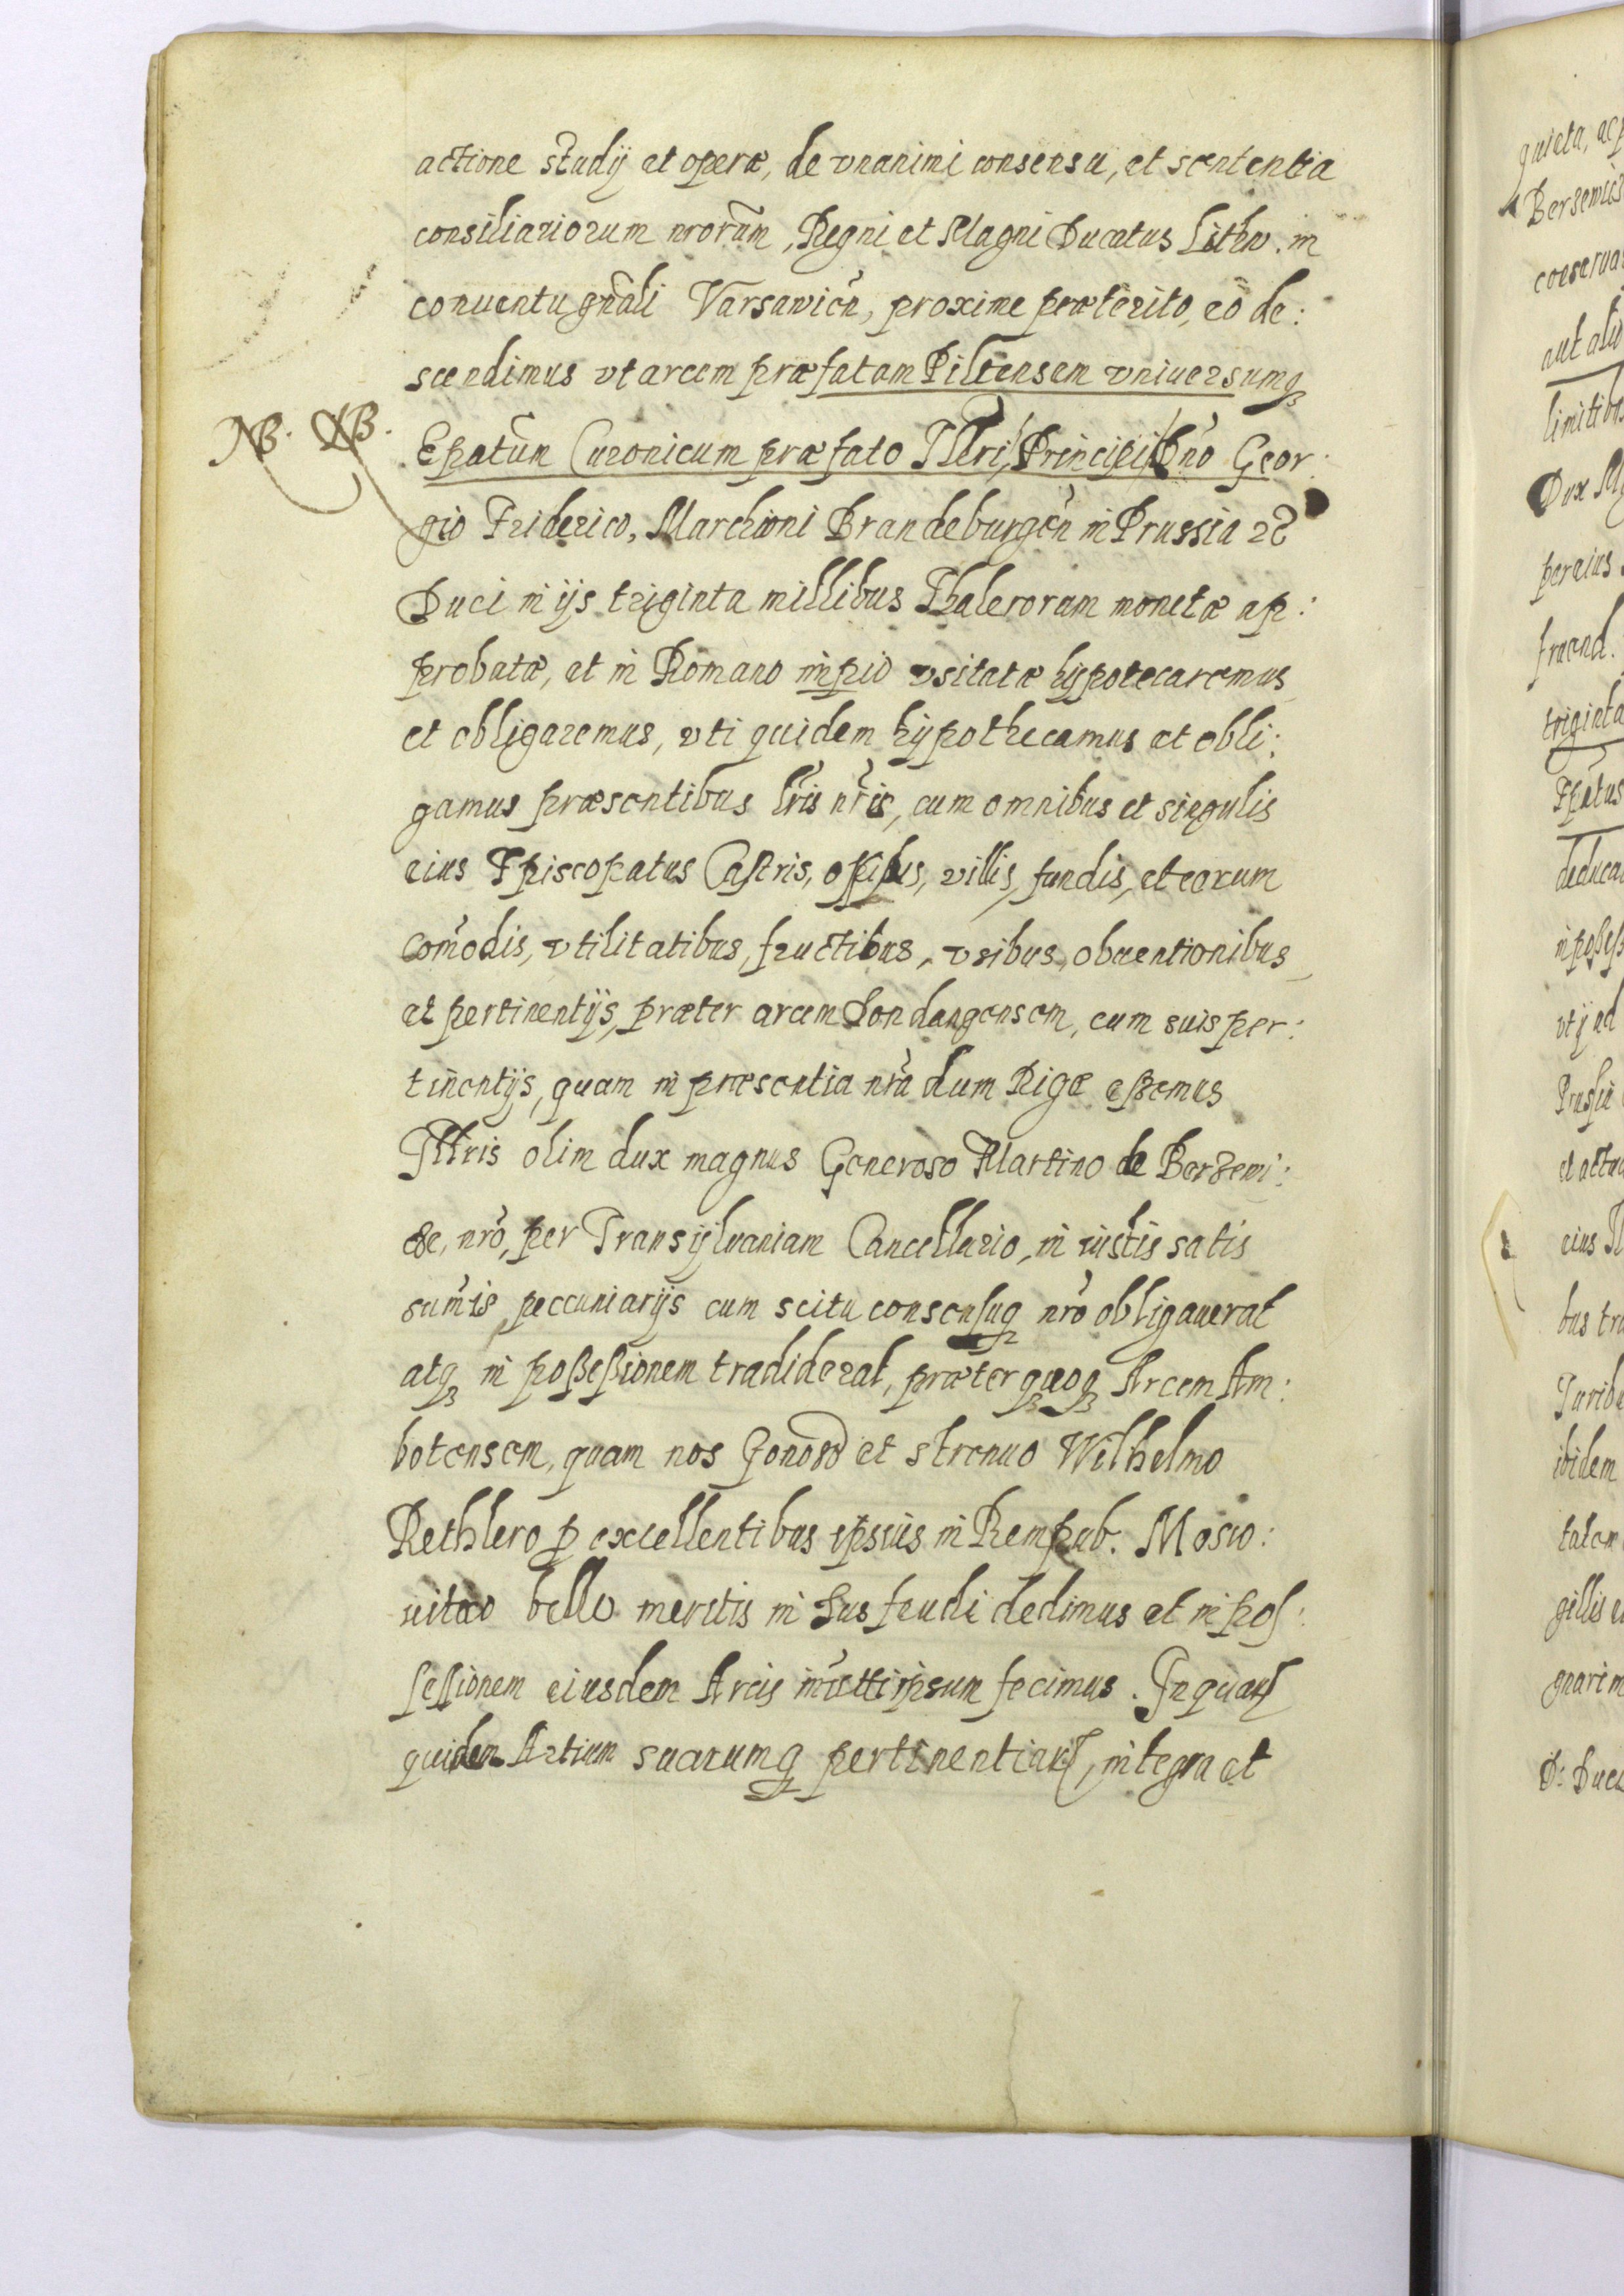 actione Studij et operæ, de vnanimi consensu, et sententia
consiliariorum nrorum, Regni et Magni Ducatus Lithv. in
conuentu gnali Varsavien, proxime præterito, eò de:
scendimus vt arcem præfatam Piltensem vniuersumq
NB. NB.
Epatum Curonicum præfato Illri, Principi Dno Geor:
gio Friderico, Marchioni Brandeburgen in Prussia
Duci in ijs triginta millibus Thalerorum monetæ ap:
probatæ, et in Romano impio vsitatæ hypotecaremus
et obligaremus, vti quidem hypothecamus et obli:
gamus præsentibus lris nris, cum omnibus et singulis
eius Episcopatus Castris, oppidis, villis, fundis, et eorum
comodis, vtilitatibus, fructibus, vsibus, obuentionibus
et pertinentijs, præter arcem Dondangensem, cum suis per:
tinentijs, quam in præsentia nra dum Rigæ essemus
Illris olim dux magnus Generoso Martino de Berzewi:
cze, nro, per Transylvaniam Cancellario, in iustis satis
sumis peccuniarijs cum scitu consensuq nro obligauerat
atq in poßeßionem tradiderat, præter quoq Arcem Am:
botensem, quam nos Genoso et strenuo Wilhelmo
Rethlero p excellentibus ipsius in Rempub. Mosco:
uitico bello meritis in Jus feudi dedimus et in pos:
sessionem eiusdem Arcis imitti ipsum fecimus. In quar
quidem Artium suarumq pertinentiar, integra et
gillis
ibidem
triginta